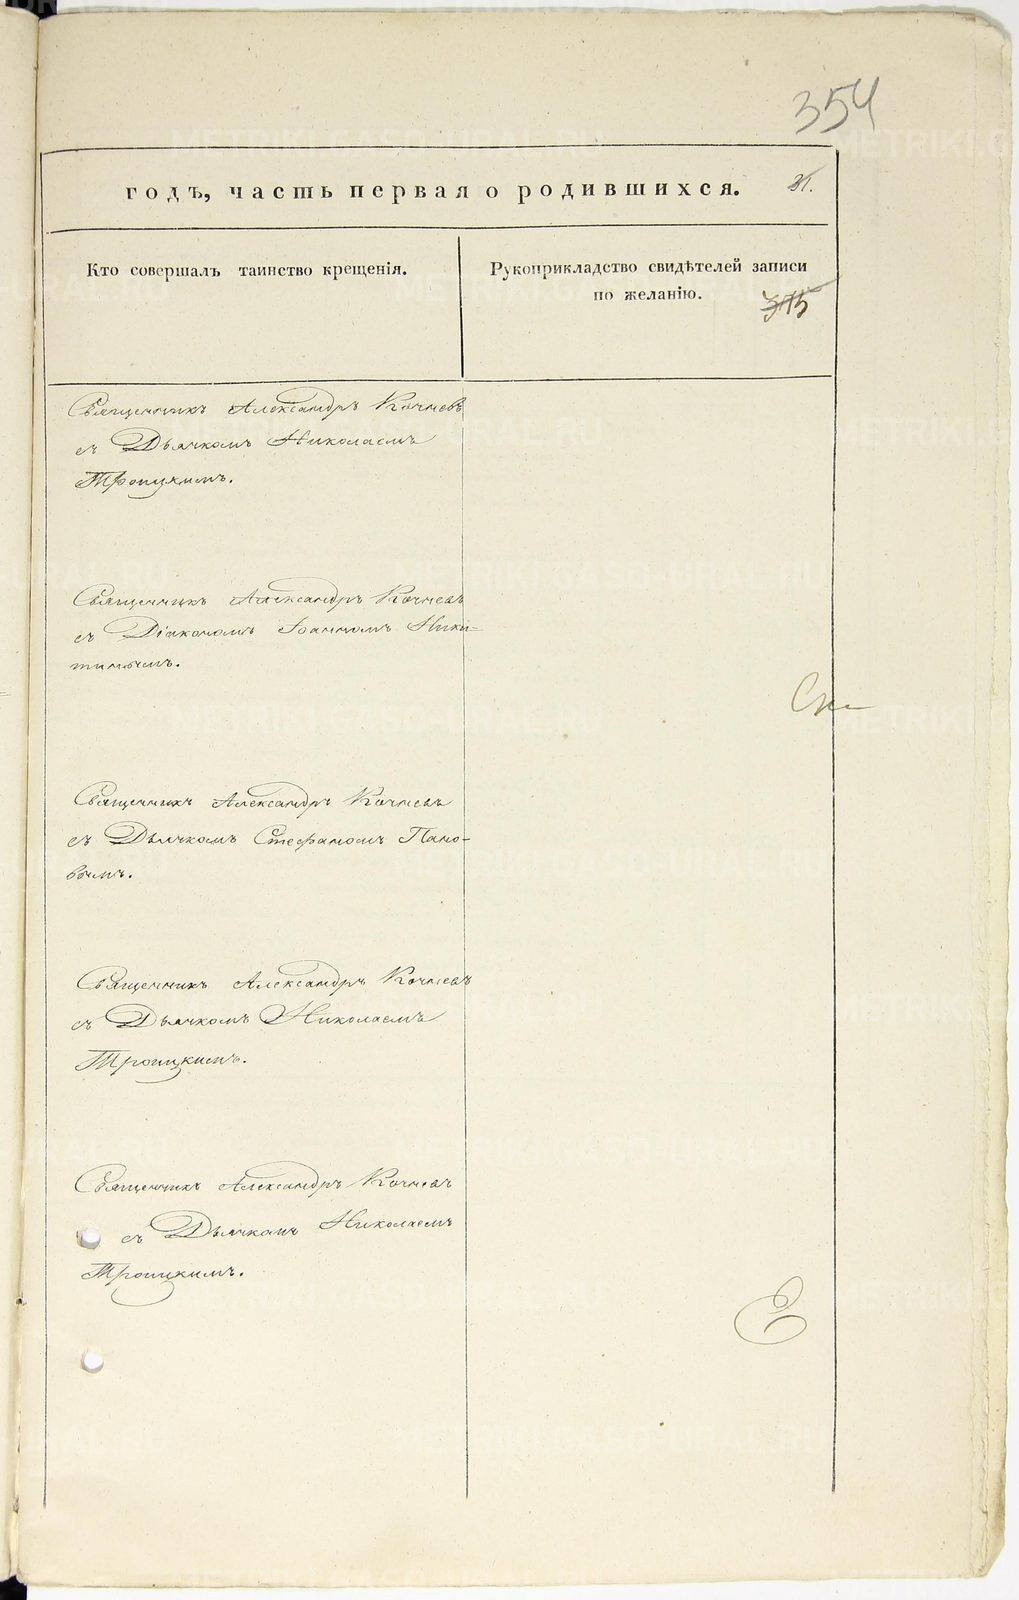 354
годъ, часть первая о родившихся.
31.
Кто совершалъ таинство крещенія.
Рукоприкладство свидѣтелей записи
по желанію.
315
Священникъ Александръ Кочневъ
съ Дьячкомъ Николаемъ
Троицкимъ.
Священникъ Александръ Кочневъ
съ Діакономъ Іоанномъ Ники-
тинымъ.
Священникъ Александръ Кочневъ
съ Дьячкомъ Стефаномъ Пано-
вымъ.
Священникъ Александръ Кочневъ
съ Дьячкомъ Николаемъ
Троицкимъ.
Священникъ Александръ Кочневъ
съ Дьячкомъ Николаемъ
Троицкимъ.
METRIKI.GASO-URAL.RU